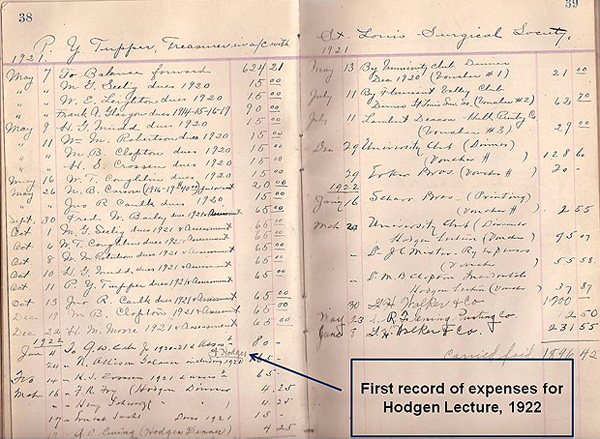 38
P. Y. Tupper, Treasurer in a/c with
1921.
May 7 To Balance forward 624 21
" " M G Seelig dues 1920 15 00
" " W. E. Leighton dues 1920 15 00
" " Frank A. Glasgow dues 1914-15-16-19 90 00
May 9 H G Mudd dues 1920 15 00
" 11 Wm M. Robertson dues 1920 15 00
" " M. B. Clopton dues 1920 15 00
" " H. S. Crossen dues 1920 15 00
May 16 W. T. Coughlin dues 1920 15 00
May 26 N. B. Carson (1916-19 20 00
" " Jno R Caulk dues 1920 15 00
Sept. 30 Fred W. Bailey dues 1921 & Assessment 65 00
Oct 1 M G Seelig dues 1921 & Assessment 65 00
Oct 6 W T. Coughlin dues 1921 & Assessment 65 00
Oct 8 W M Robertson dues 1921 & Assessment 65 00
Oct 10 H G. Mudd dues 1921 & Assessment 65 00
Oct 11 P. Y. Tupper dues 1921 & Assessment 65 00
Oct 13 Jno R. Caulk dues 1921 & Assessment 65 00
Dec 19 M B. Clopton dues 1921 & Assessment 65 -
Dec 24 H. M. Moore 1921 & Assessment 65 -
1922
Jan 4 To 1920-21 & 80 -
Hodgen
" 21 including 1920 65 -
Feb 14 1921 65 -
Mch 16 F. R. Fry (Hodgen Dinner 4 25
" 4 25
" 17 Ernest Sachs Dues 1921 15 -
" 19 (Hodgen Dinner) 4 25
39
St. Louis Surgical Society.
1921
May 13 By University Club Dinner
Dec 1920 (Voucher #1) 21 00
July 11 By Florissant Valley Club
Dinner St Louis Sur. So. (Voucher #2) 62 70
July 11 Lambert Deacon-Hull Printg Co
(Voucher #3) 29 00
Dec 29 University Club (Dinner)
(Voucher # ) 128 60
29 Bros (Voucher # ) 20 -
1922
Jany 16 Bros. (Printing)
(Voucher # 2 55
Mch 24 University Club (Dinner
Hodgen Lecture (Voucher ) 95 07
" Dr. J C Ry Expenses
(Voucher 55 58
" Dr M B Clopton Incidentals
Hodgen Lecture (Voucher 37 87
" 30 G. H. Walker & Co 1200 -
May 23 Printing Co 12 50
June 5 G. H. Walker & Co. 231 55
Carried ford. 1896 42
First record of expenses for
Hodgen Lecture, 1922